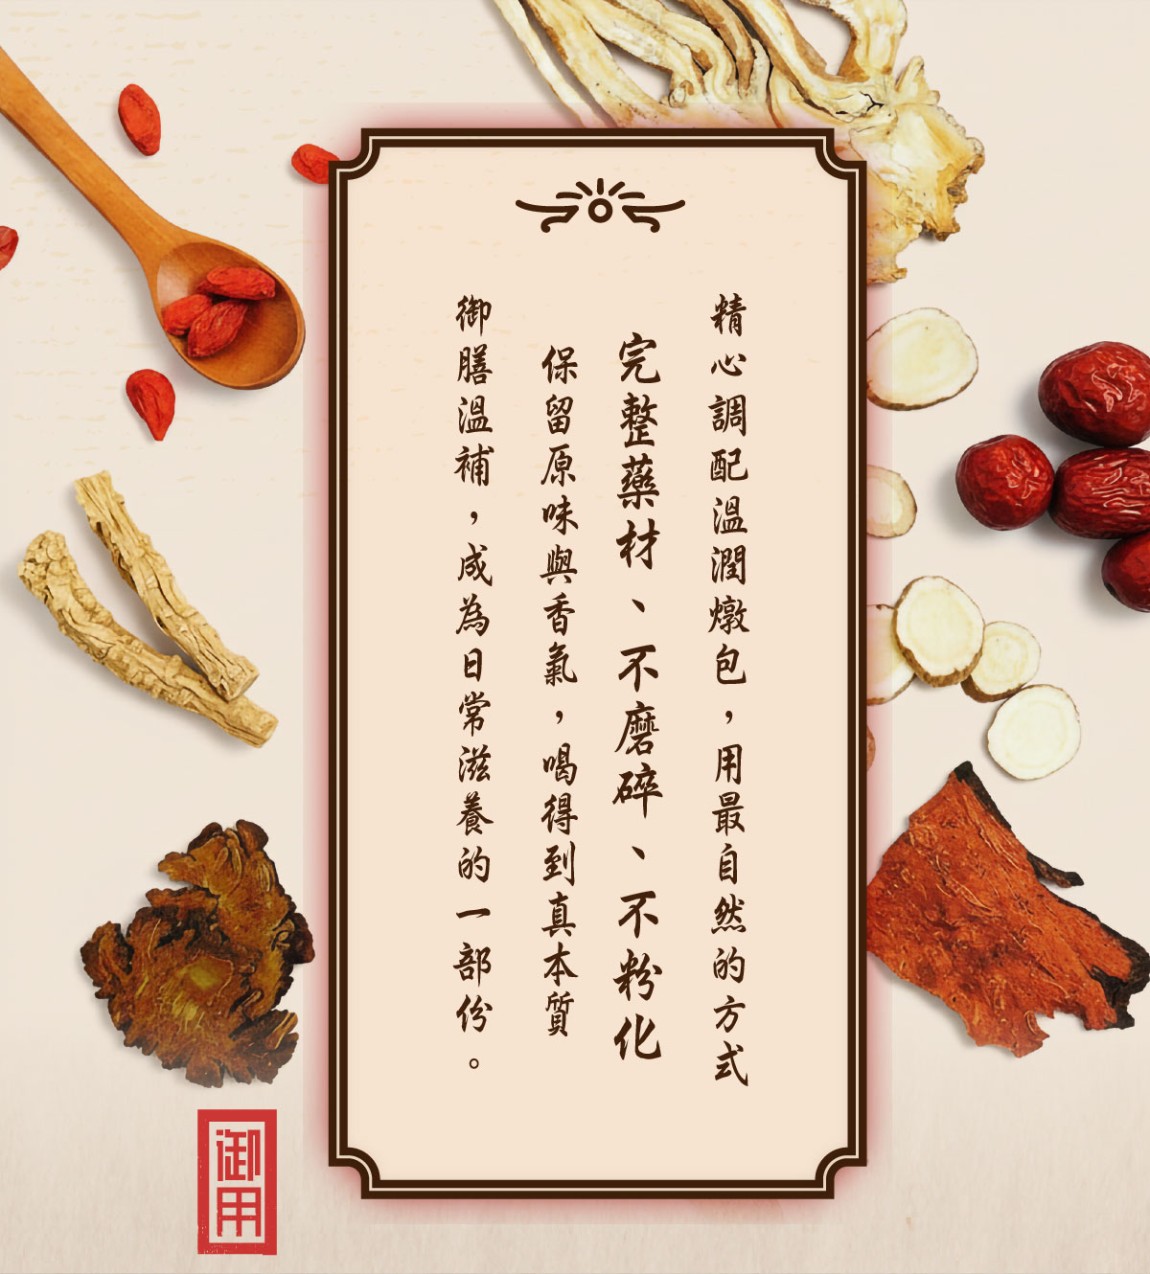 精心調配溫潤燉包，用最自然的方式
完整藥材、不磨碎、不粉化
保留原味與香氣，喝得到真本質
御膳溫補，成為日常滋養的一部份。
御用